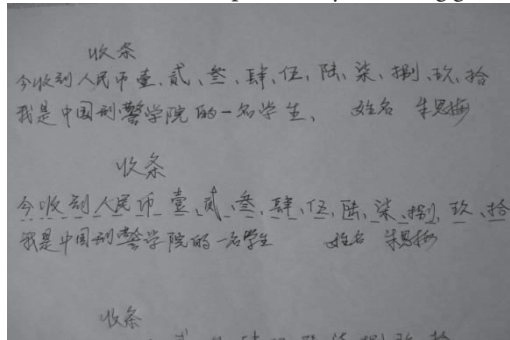 收条
今收到人民币壹、贰、叁、肆、伍、陆、柒、捌、玖、拾
我是中国刑警学院的一名学生、 姓名 朱思梅
收条
今收到人民币 壹、贰、叁、肆、伍、陆、柒、捌、玖、拾
我是中国刑警学院的一名学生 姓名 朱思梅
收条